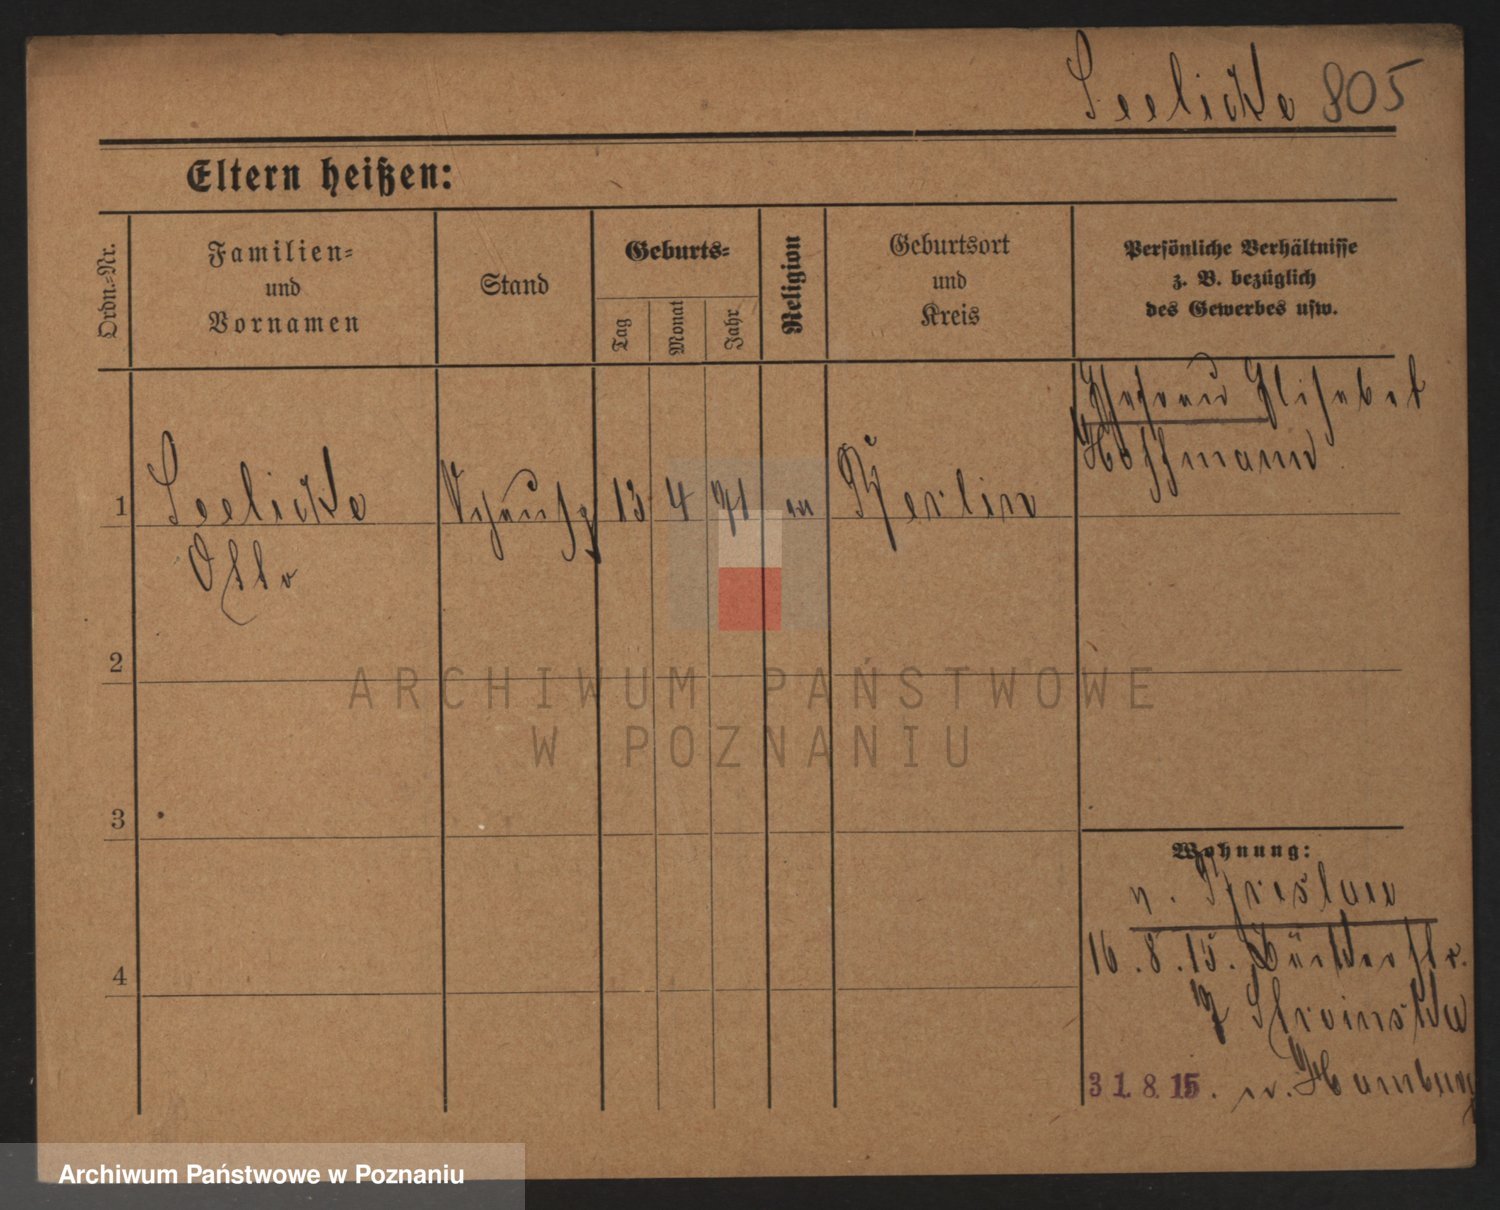 Seelicke 805
Eltern heißen:
Ordn.=Nr.
Familien=
und
Vornamen
Stand
Geburts=
Tag
Monat
Jahr
Religion
Geburtsort
und
Kreis
Persönliche Verhältnisse
z. B. bezüglich
des Gewerbes usw.
Ehefrau Elisabet
Hoffmann
1 Seelicke Schausp 13 4 71 ev Berlin
Otto
2
3
4
Wohnung:
v. Breslau
16.8.15. Bäckerstr.
7 Stroinska
31.8.15. n. Hamburg
ARCHIWUM PAŃSTWOWE
W POZNANIU
Archiwum Państwowe w Poznaniu